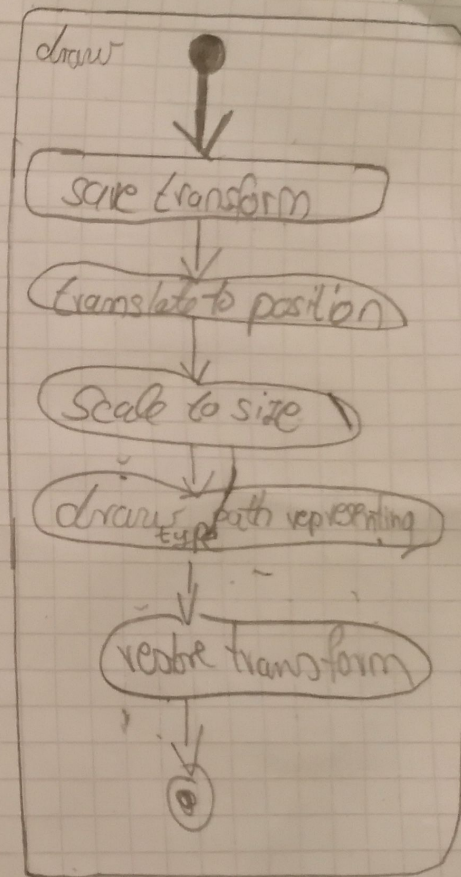 draw
save transform
translate to position
scale to size
draw path representing
type
restore transform